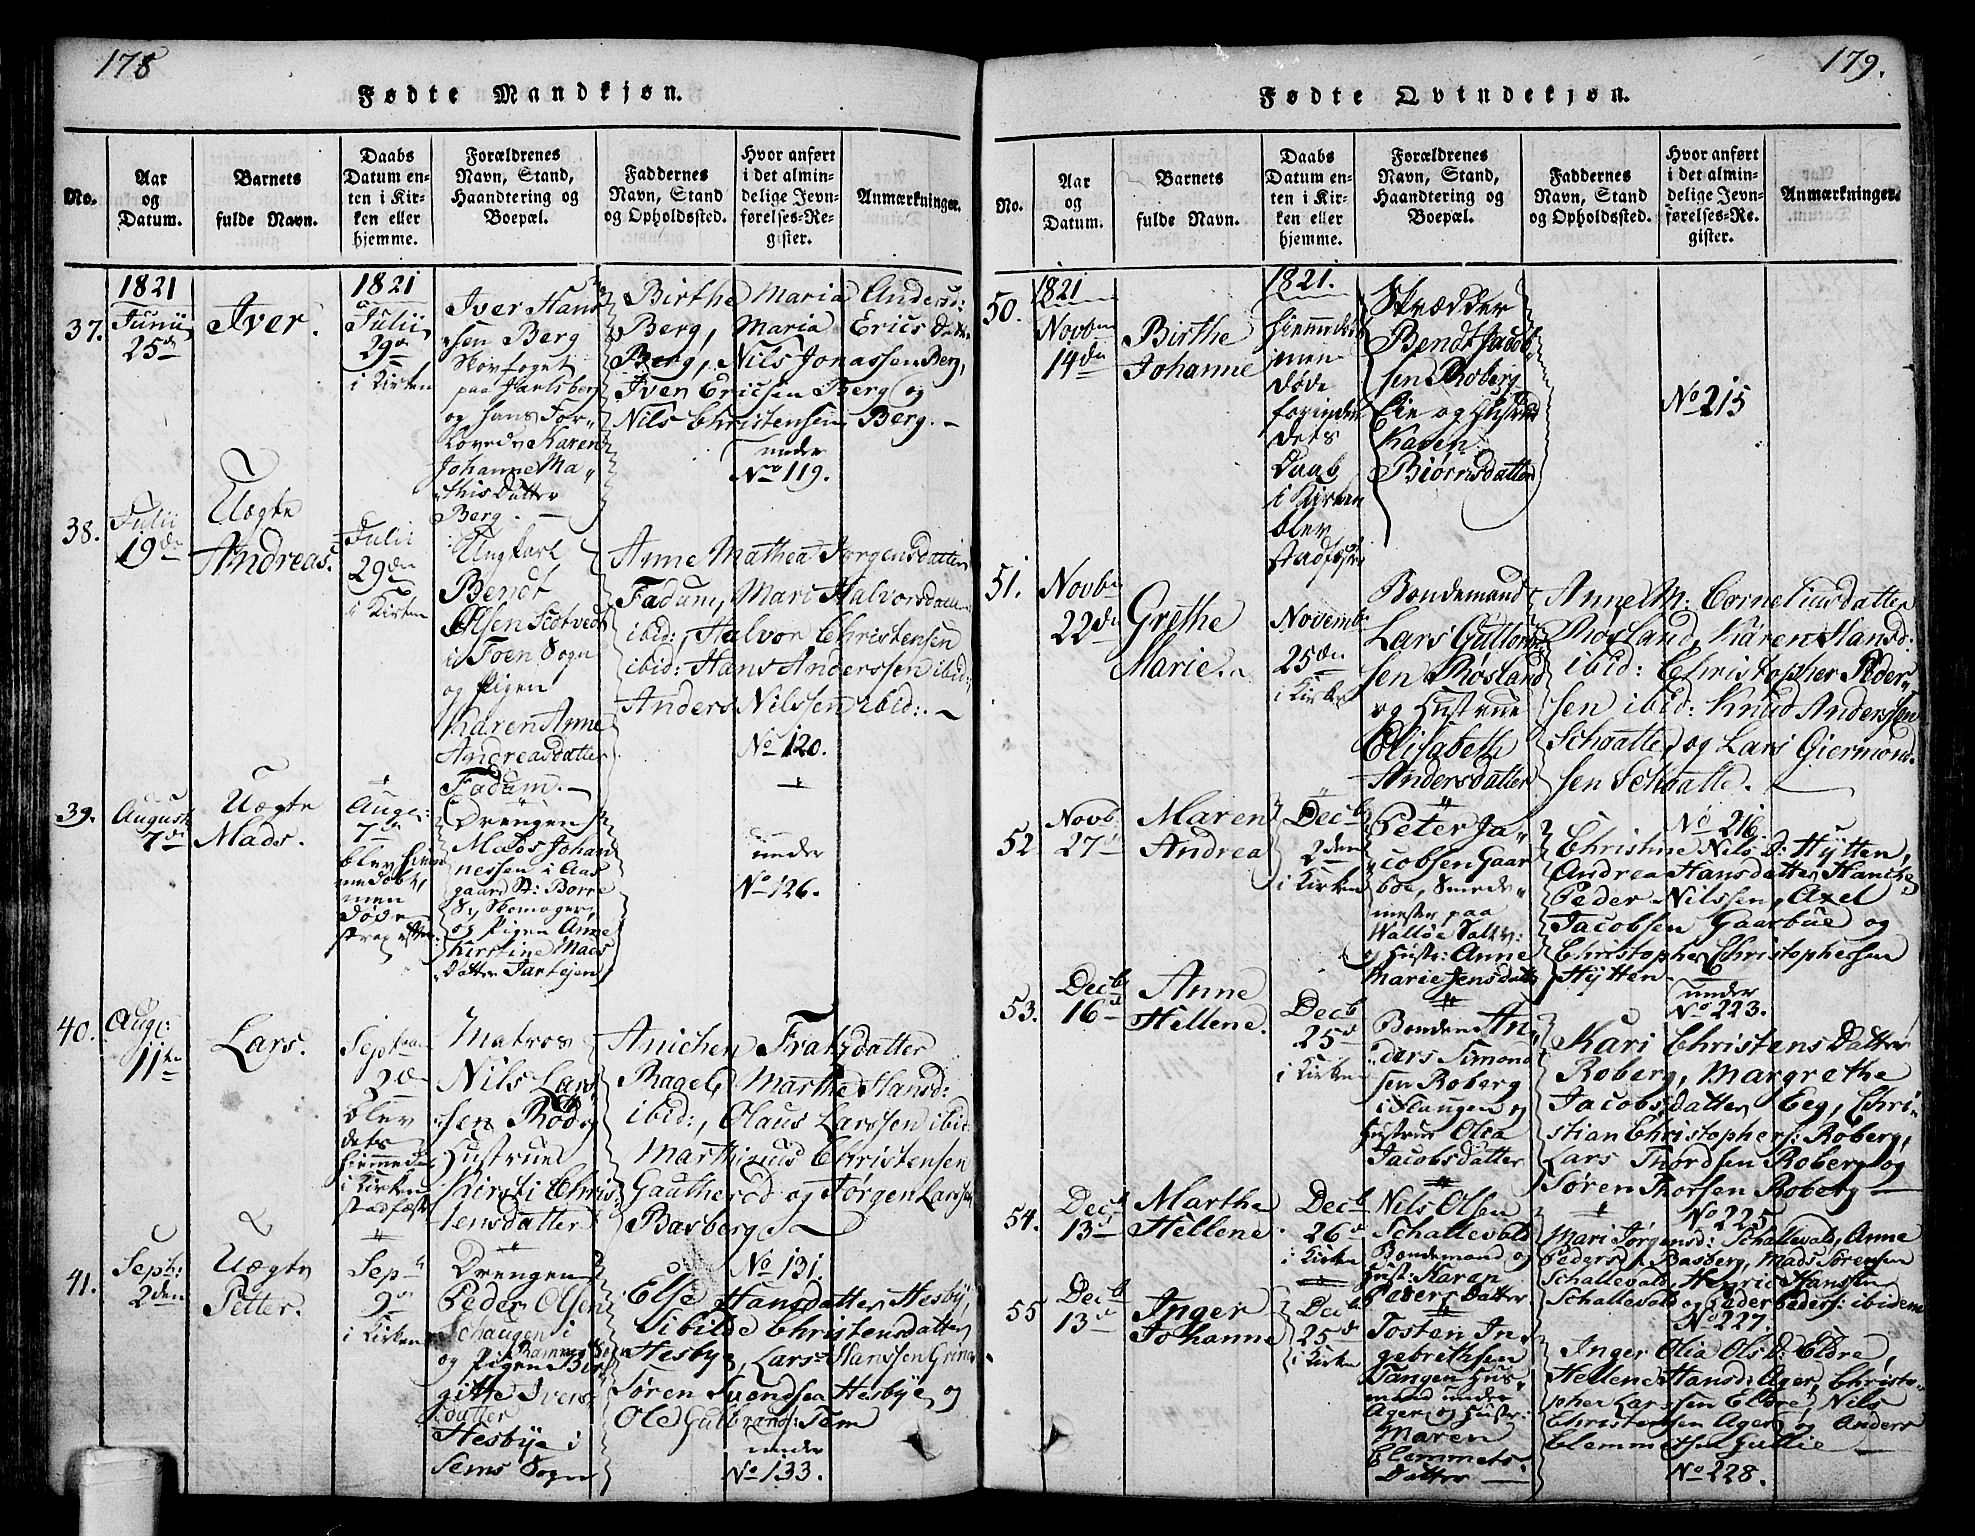 178
Fødte Mandkjøn.
No.
Aar
og
Datum.
Barnets
fulde Navn.
Daabs
Datum en-
ten i Kir-
ken eller
hjemme.
Forældrenes
Navn, Stand,
Haandtering og
Boepæl.
Faddernes
Navn, Stand
og Opholdssted.
Hvor anført
i det almin-
delige Jevn-
førelses-Re-
gister.
Anmærkninger.
37.
1821
Junii
25de
Iver.
1821
Julii
29de
i Kirken
Iver Hans
sen Berg
Skovfoget
paa Jarlsberg
og hans For-
lovede Karen
Johanne Ma-
this Datter
Berg.
Birthe Maria Andersd:
Berg, Maria Erics Datter
Berg, Nils Jonassen Berg,
Iver Ericsen Berg og
Nils Christensen Berg. -
under
No 119.
38.
Julii
19de
Uægte
Andreas.
Julii
29den
i Kirken
Ungkarl
Bendt
Olsen Scotvedt
i Foen Sogn
og Pigen
Karen Anne
Andreasdatter
Fadum. -
Anne Mathea Jørgensdatter
Fadum, Mari Halvorsdatter
ibid:, Halvor Christensen
ibid: Hans Anderssen ibid:,
Anders Nilssen ibid:. -
No 120.
39.
August
7de
Uægte
Mads.
Aug:
7de
blev hiem
me døbt,
men
døde
strax efter.
Drengen
Mads Johan
nessen i Aas
gaard St: Borre
S. Skomager,
og Pigen Anne
Kirstine Mads
Datter
under
No 126.
40.
Aug:
11te
Lars.
Septbr
2de
blev
dets
hiemmedaab
i Kirken
stadfæst
Matros
Nils Lars
sen Rød og
Hustrue
Kirsti Chris
tensdatter
Anichen Frantzdatter
Bagels Marthe Hansd:
ibid:, Olaus Larssen ibid:
Marthinus Christensen
Gautherød og Jørgen Larssen
Basberg.
No 131.
41.
Sept:
2den
Uægte
Petter.
Sep
9de
i Kirken
Drengen
Peder Olsen
Schaugen i
Ramnes Sogn
og Pigen Bir
gitte Ivers
datter
Hesbye i
Sems Sogn
Else Hansdatter Hesbye,
Sibilde Christensdatter
Hesbye, Lars Hanssen Grine
Søren Svendsen Hesbye og
Ole Gulbrands: Tem
under
No 133.
179.
Fødte Qvindekjøn.
No.
Aar
og
Datum.
Barnets
fulde Navn.
Daabs
Datum en-
ten i Kir-
ken eller
hjemme.
Forældrenes
Navn, Stand,
Haandtering og
Boepæl.
Faddernes
Navn, Stand
og Opholdssted.
Hvor anført
i det almin-
delige Jevn-
førelses-Re-
gister.
Anmærkninger.
50.
1821
Novbr
14de
Birthe
Johanne
1821.
hiemmedøbt
men
døde
forinden
dets
Daab
i Kirken
blev
stadfæstet
Skrædder
Bendt Jacob
sen Roberg
Eie og Hustrue
Karen
Biörnsdatter
No 215
51.
Novbr
22de
Grethe
Marie.
Novembr
25den
i Kirken
Bondemand
Lars Guttorm
sen Røsland
og Hustrue
Elisabeth
Andersdatter
Anne M: Corneliusdatter
Røsland, Karen Hansd:
ibid: Christopher Peder-
sen ibid: Knud Anderssen
Schaatte og Lars Giermond-
sen Schaatte.
No 216.
52
Novb.
27de
Maren
Andrea
Decb
2den
i Kirken
Peter Ja-
cobsen Gaar
boe, Smede-
mester paa
Walløe Saltv:
og Hustr: Anne
Marie Jensdatter
Christine Nils D: Hÿtten,
Andrea Hansdatter
Peder Nilssen, Axel
Jacobsen Gaarbue og
Christopher Christophersen
Hÿtten -
under
No 223.
53.
Decb
16de
Anne
Hellene.
Decb
25de
i Kirken
Bonden An-
ders Simond
sen Roberg
i Slaugen og
Hustrue Olia
Jacobsdatter
Kari Christens Datter
Roberg, Margrethe
Jacobsdatter Eeg, Chri-
stian Christophers: Roberg,
Lars Thordsen Roberg og
Søren Thorsen Roberg
No 225.
54.
Decb
13de
Marthe
Hellene
Decb
26de
i Kirken
Nils Olsen
Schallevald
Bondemand og
Hust: Karen
Peders Datter
Mari Jørgensd: Schallevald, Anne
Pedersd: Basberg, Mads Sørensen
Schallevald, Henric Hanssen
Schallevald og Peder Peders: ibidem
No 227.
55
Decb
13de
Inger
Johanne
Decb
25de
i Kirken
Tosten In-
gebrethsen
Tangen Huus
mand under
Ager og Hustr:
Maren
Clemmets
Datter
Inger Olia Ols D: Eldre,
Hellene Hansd: Ager, Christo-
pher Larssen Eldre, Nils
Christensen Ager og Anders
Clemmetsen Gullie
No 228.